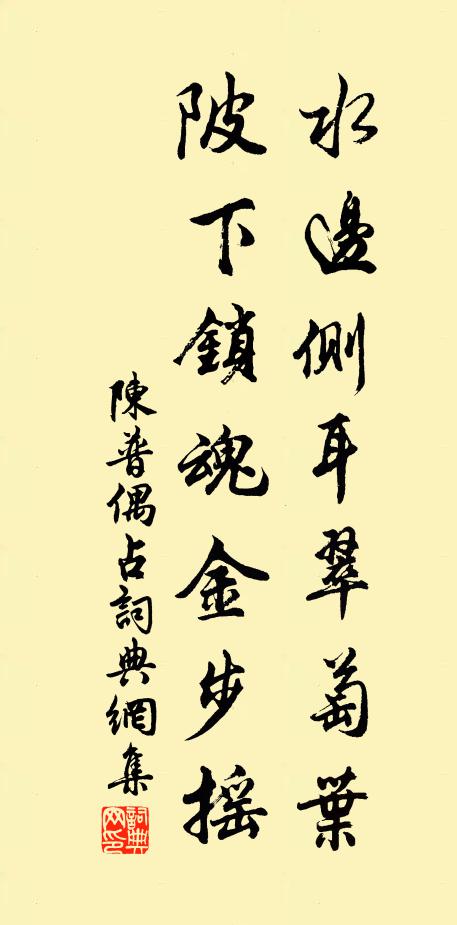 水邊側耳翠萄葉
陂下鎖魂金步摇
陳普偶占詞典網集
詞典網印